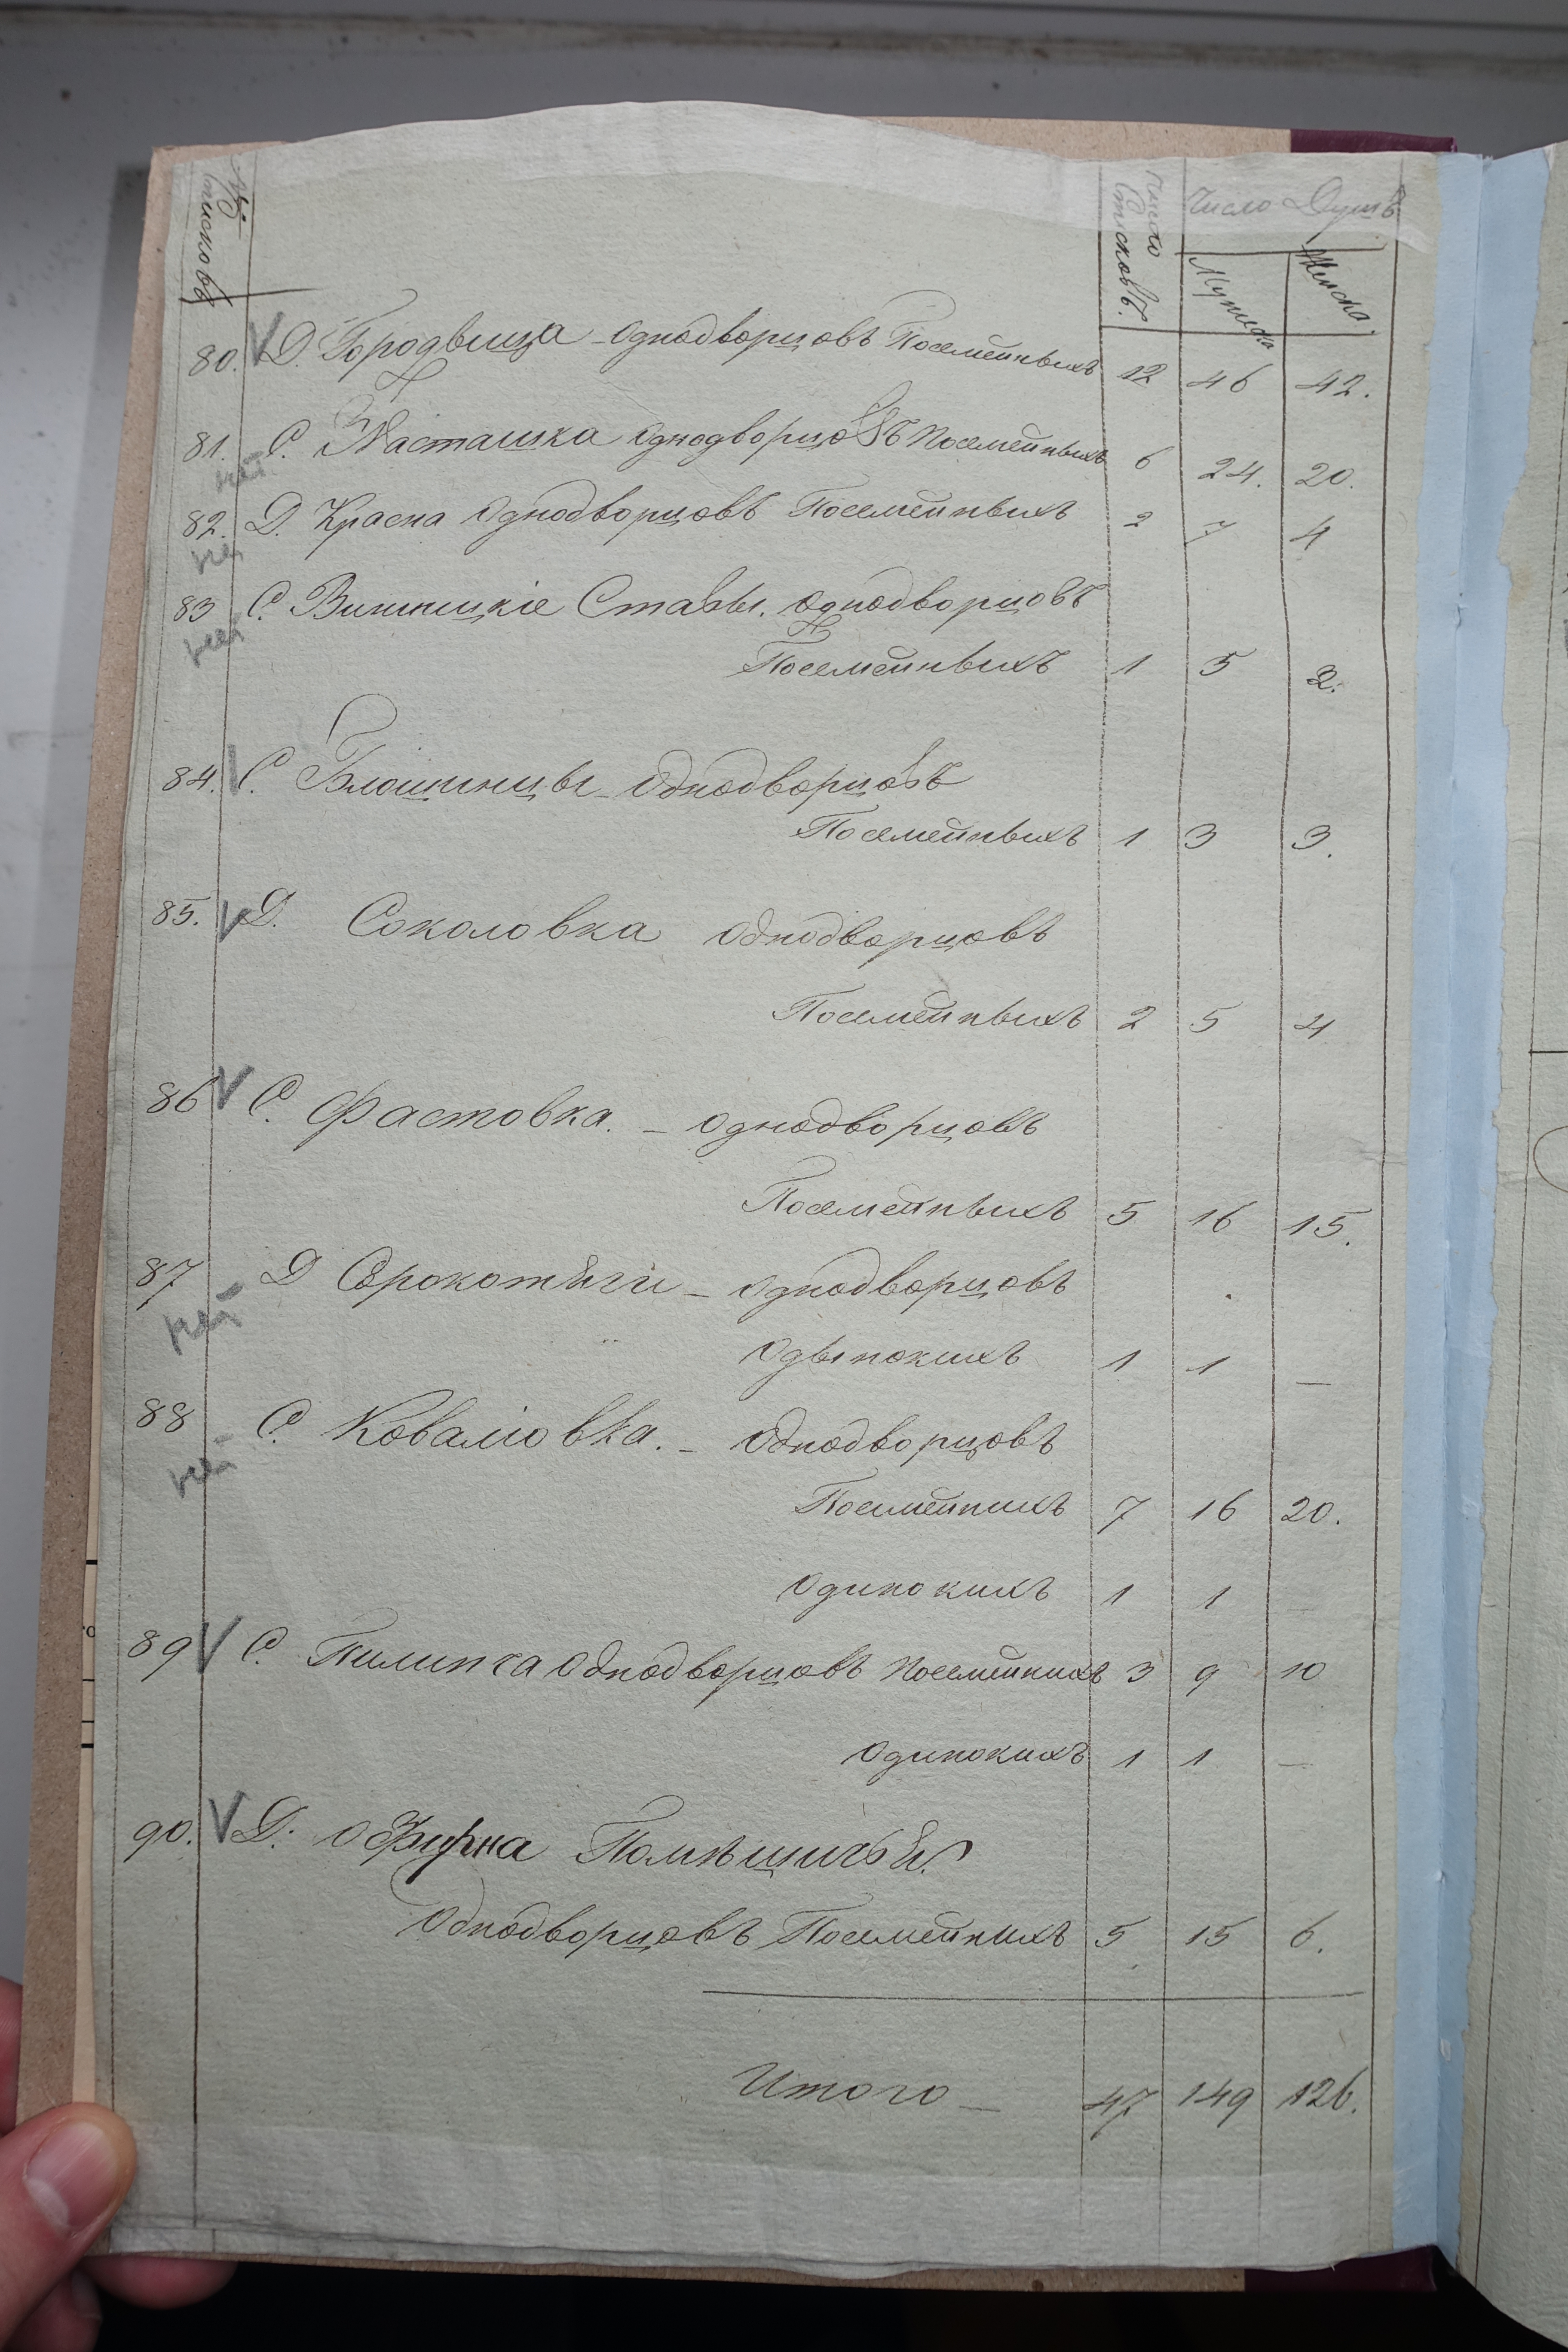 № списковъ
Число списковъ. Число Душъ
Мужеска Женска.
80. Д. Городвища - однодворцовъ Посемейныхъ 12 46 42.
81. С. Насташка однодворцовъ Посемейныхъ 6 24. 20.
нет
82. Д. Красна Однодворцовъ Посемейныхъ 2 7 4
нет
83 С. Винницкіе Ставы. однодворцовъ
нет
Посемейныхъ 1 5 2.
84. С. Блощинцы - Однодворцовъ
Посемейныхъ 1 3 3.
85. Д. Соколовка Однодворцовъ
Посемейныхъ 2 5 4
86 С. Фастовка. - однодворцовъ
Посемейныхъ 5 16 15.
87 Д Сорокотяги - Однодворцовъ
нет
Одынокихъ 1 1 —
88 С. Ковалювка. - Однодворцовъ
нет
Посемейнихъ 7 16 20.
Одинокихъ 1 1
89 С. Пилипча Однодворцовъ Посемейнихъ 3 9 10
Одинокихъ 1 1 —
90. Д. Офирна Помѣщичьей.
Однодворцовъ Посемейнихъ 5 15 6.
Итого — 47 149 126.